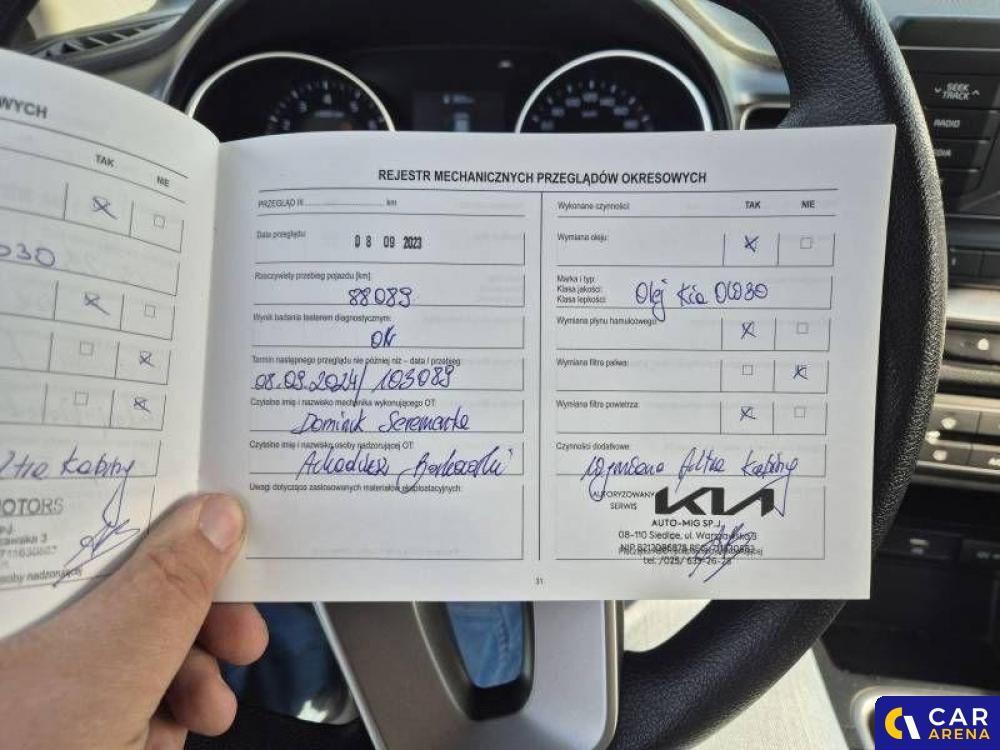 WYCH
TAK NIE
filtra Kabiny
MOTORS
osoby nadzorującej
REJESTR MECHANICZNYCH PRZEGLĄDÓW OKRESOWYCH
PRZEGLĄD III km
Data przeglądu:
08 09 2023
Rzeczywisty przebieg pojazdu [km]:
88089
Wynik badania testerem diagnostycznym:
OK
Termin następnego przeglądu nie później niż – data / przebieg:
08.09.2024/ 103089
Czytelne imię i nazwisko mechanika wykonującego OT:
Dominik
Czytelne imię i nazwisko osoby nadzorującej OT:
Uwagi dotyczące zastosowanych materiałów eksploatacyjnych:
Wykonane czynności: TAK NIE
Wymiana oleju:
Marka i typ:
Klasa jakości:
Klasa lepkości:
Olej Kia 0W30
Wymiana płynu hamulcowego:
Wymiana filtra paliwa:
Wymiana filtra powietrza:
Czynności dodatkowe:
Wymiana filtra Kabiny
AUTORYZOWANY
SERWIS
KIA
AUTO-MIG SP.J.
08-110 Siedlce, ul. Warszawska 3
31
SEEK
TRACK
RADIO
CAR
ARENA